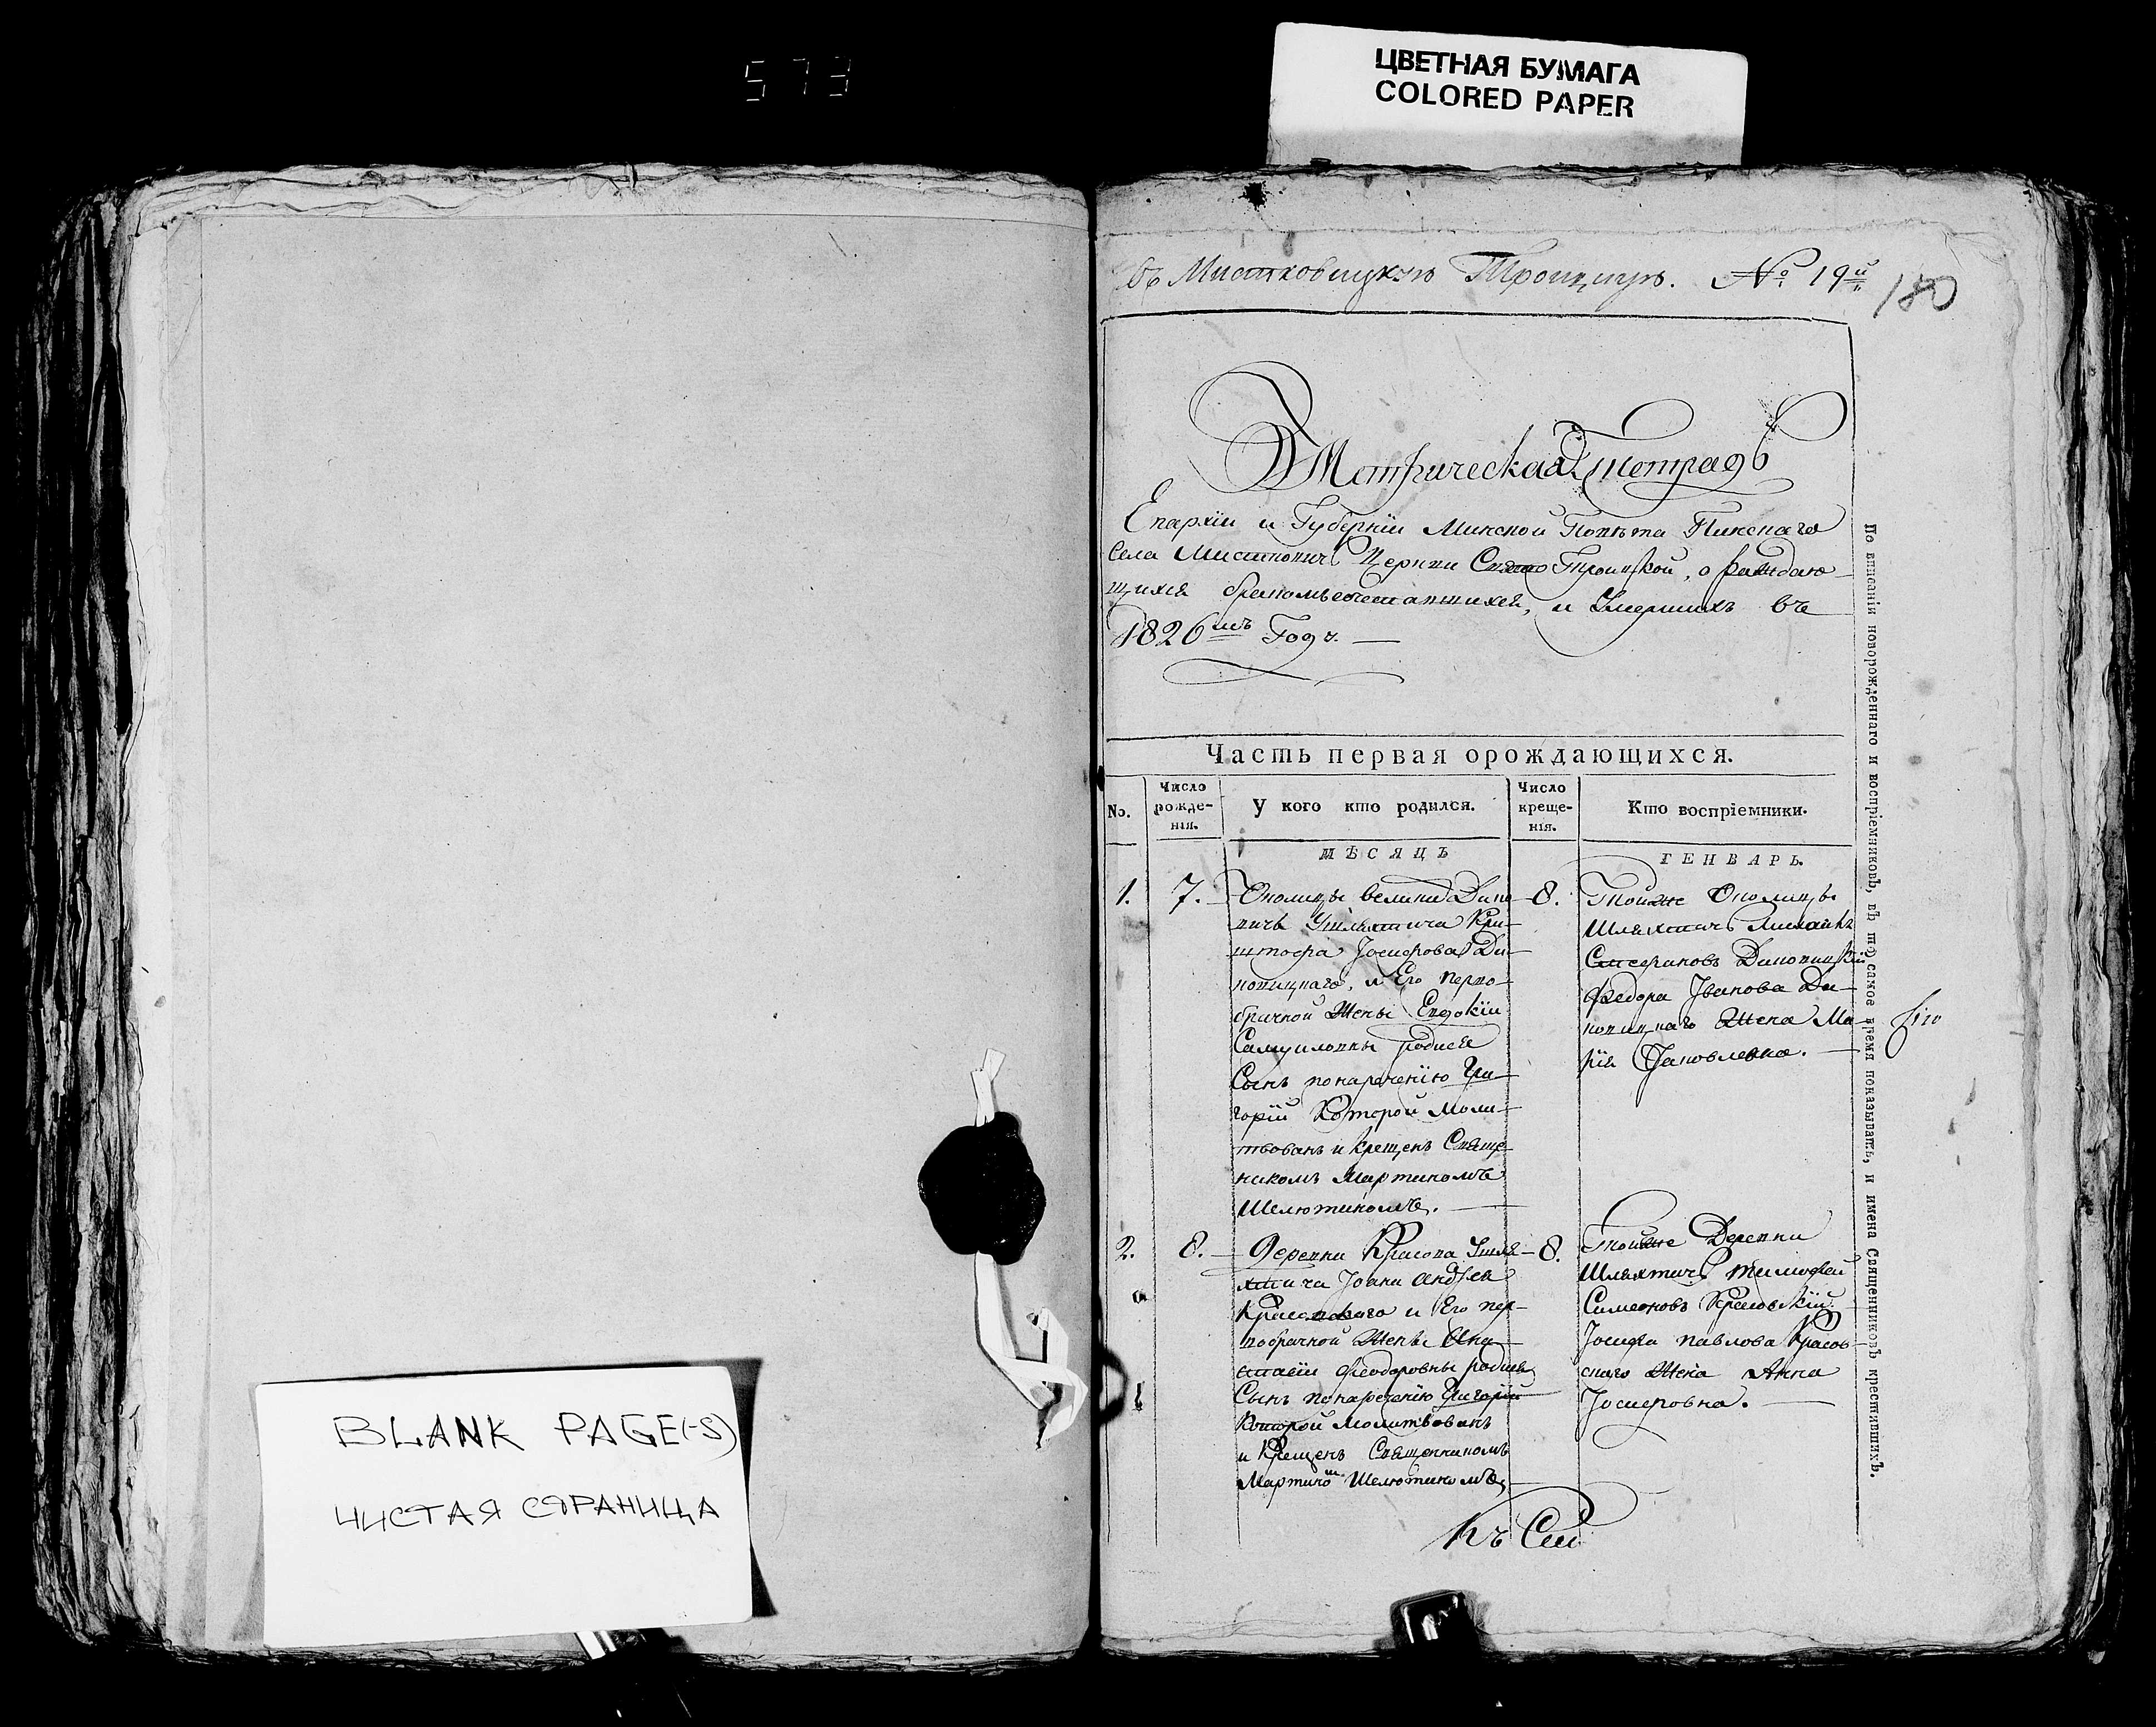 573
ЦВЕТНАЯ БУМАГА
COLORED PAPER
BLANK PAGE(-S)
ЧИСТАЯ СТРАНИЦА
№ 19й
180
Метрическая тетрадь
Епархіи и Губерніи Минской Повѣта Пинскаго
Села Мистковичь Церкви Свято Троицкой, о раждаю-
щихся бракомъсочетавшихся, и Умершихъ въ
1826мъ Годѣ. —
Часть первая орождающихся.
No.
Число рожде-нія.
У кого кто родился.
Число креще-нія.
Кто воспріемники.
МѢСЯЦЪ
ГЕНВАРЬ.
1.
7.
Околицы велики Дико-
вичь Ушляхтича Кри-
штофа Іосифова Ди-
ковицкаго, и Его перво-
брачной Жены Евдокіи
Самуиловны родися
Сынъ понареченію Гри-
горій Которой моли-
твованъ и крещенъ Свяще-
никомъ Мартиномъ
Шелютиномъ. —
8.
Тойже Околицы
Шляхтичъ
Диковицкій
Федора Іванова Ди-
ковицкаго Жена Ма-
рія Яковлевна. —
2.
8.
Деревни Красова Ушля-
хтича Іоана Андрея
Красовского и Его пер-
вобрачной Жены Ана-
стасіи Феодоровны родися
Сынъ понареченію Григорій
Которой Молитвованъ
и Крещенъ Священникомъ
Мартиномъ Шелютиномъ,
8.
Тойже Деревни
Шляхтичъ Тимофей
Симеоновъ Красовскій
Іосифа Павлова Красов-
скаго Жена Анна
Іосифовна. —
По вписаніи новорожденнаго и воспріемниковъ, въ то самое время показывать, и имена Священниковъ крестившихъ.